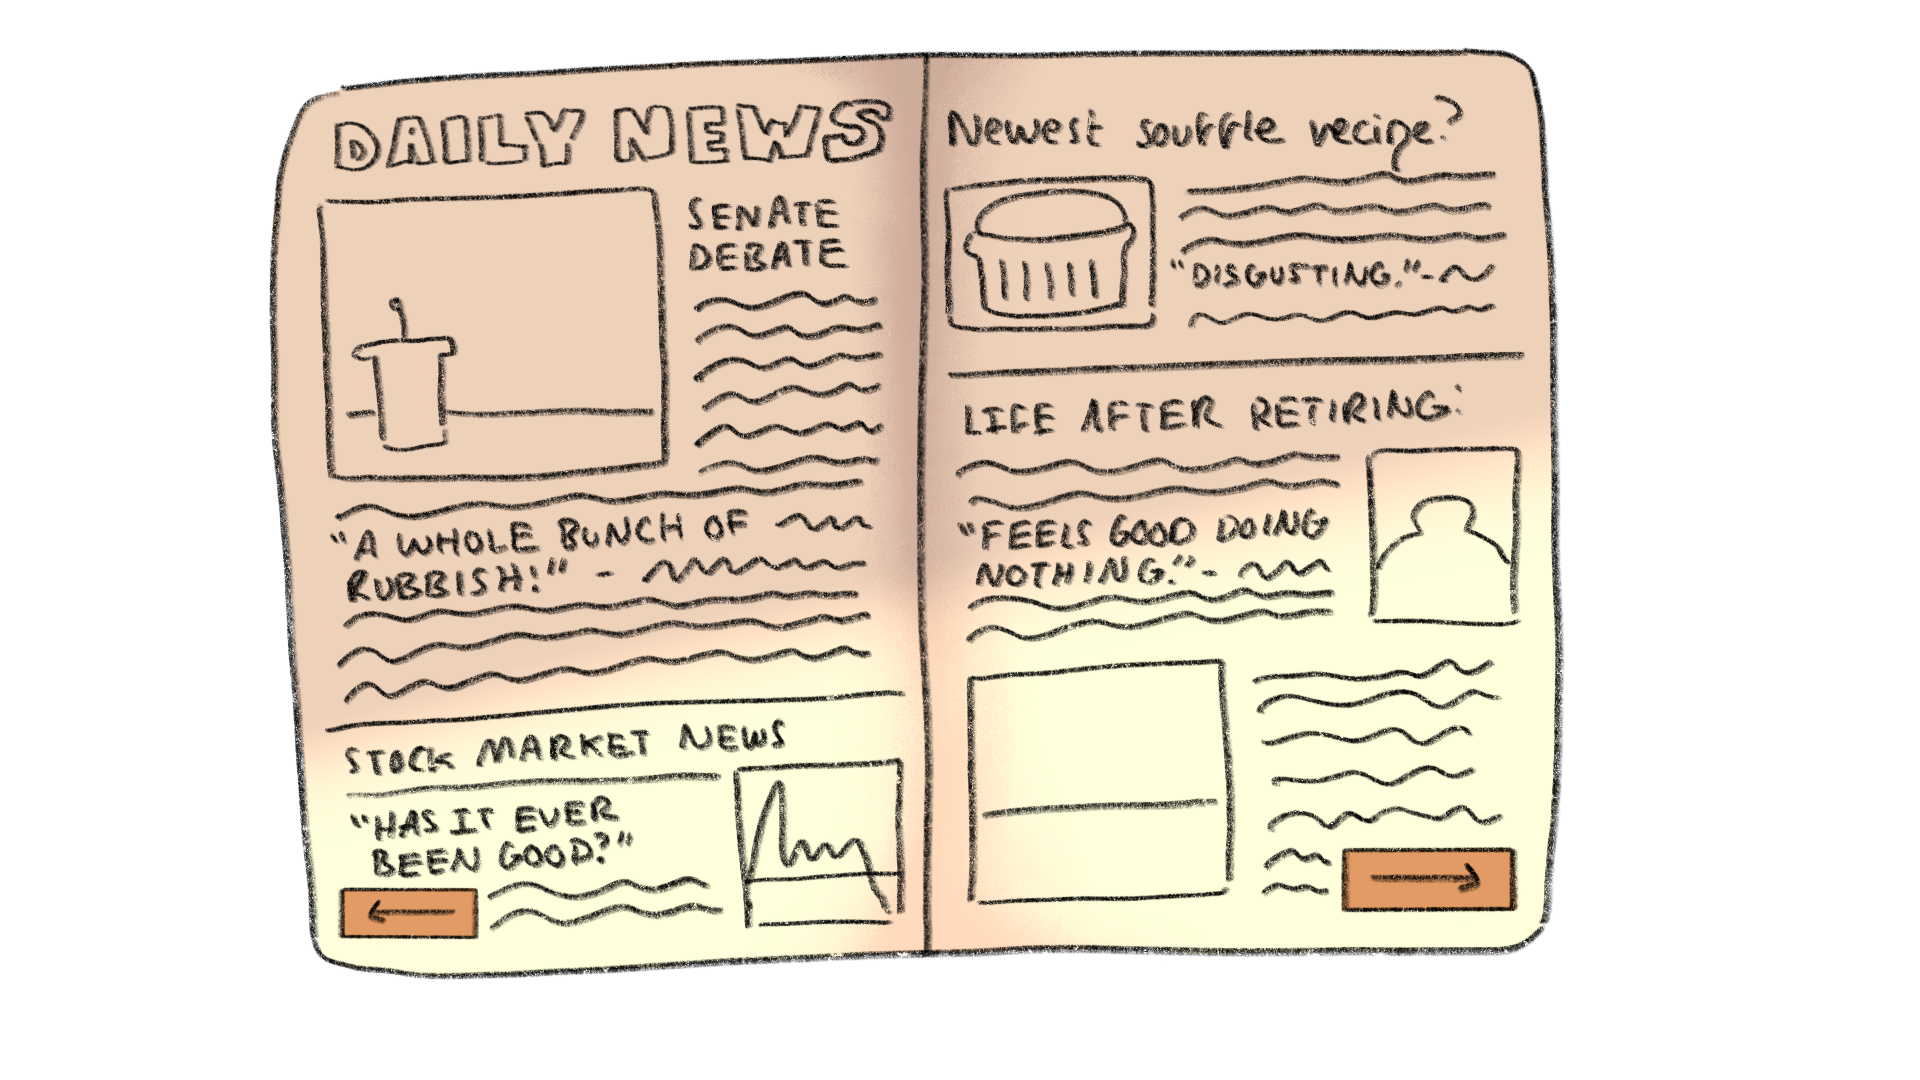 DAILY NEWS
SENATE
DEBATE
"A WHOLE BUNCH OF
RUBBISH!" -
STOCK MARKET NEWS
"HAS IT EVER
BEEN GOOD?"
Newest souffle recipe?
"DISGUSTING."-
LIFE AFTER RETIRING:
"FEELS GOOD DOING
NOTHING."-